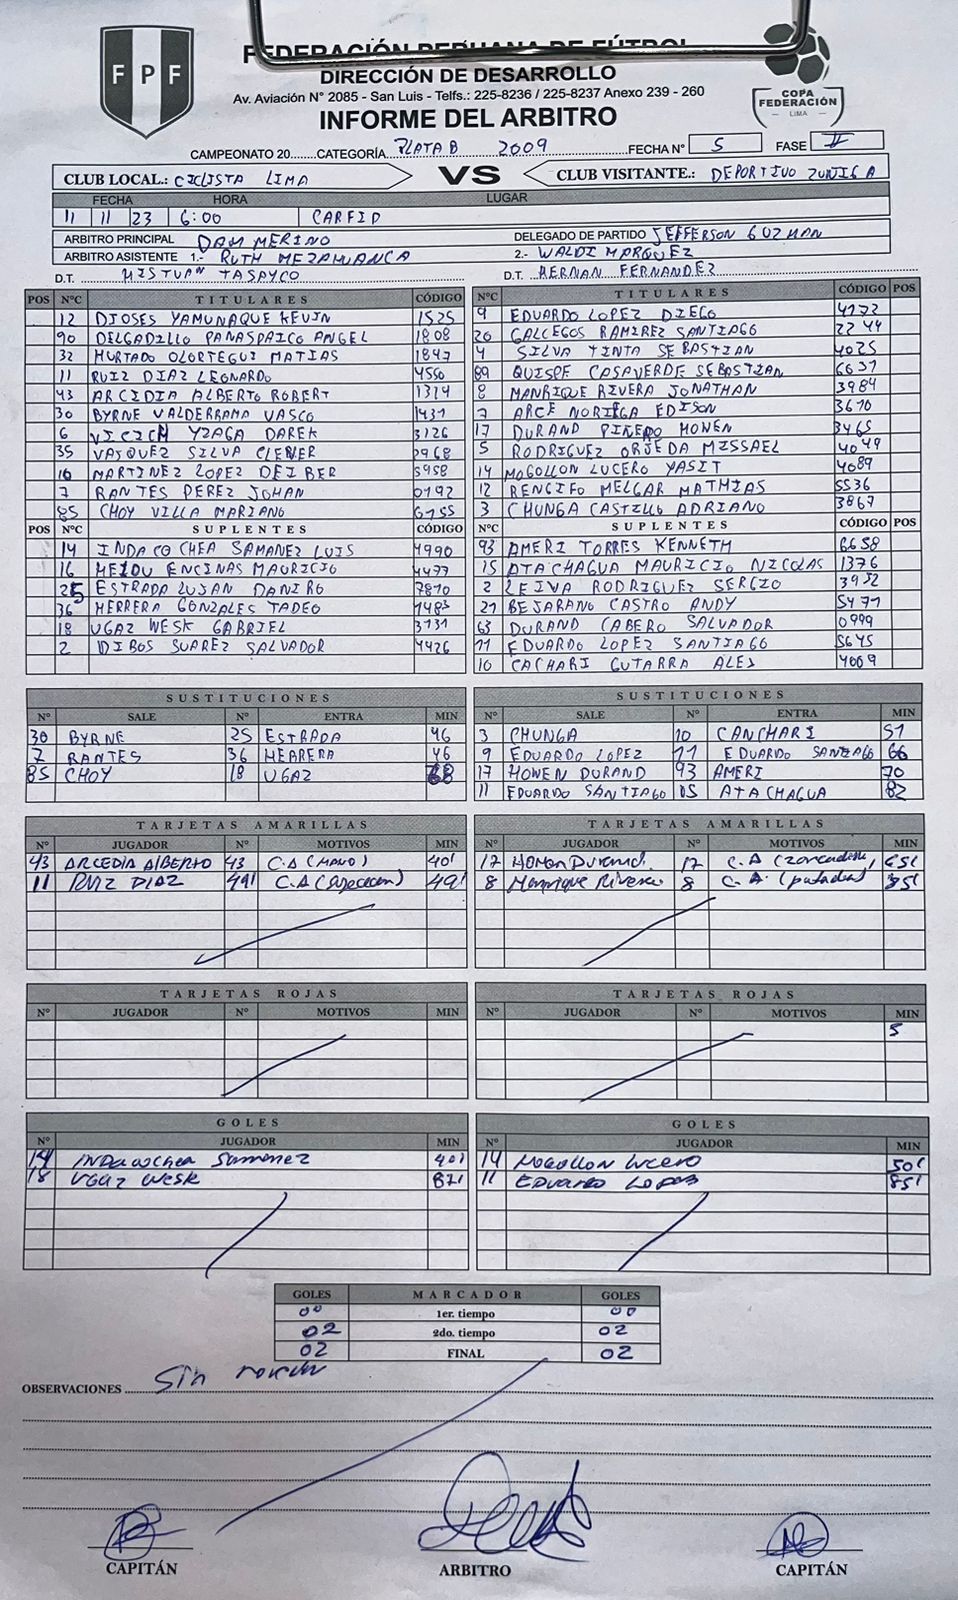 FPF
FEDERACIÓN PERUANA DE FÚTBOL
DIRECCIÓN DE DESARROLLO
Av. Aviación N° 2085 - San Luis - Telfs.: 225-8236 / 225-8237 Anexo 239 - 260
INFORME DEL ARBITRO
COPA
FEDERACIÓN
LIMA
CAMPEONATO 20 CATEGORÍA PLATA B 2009 FECHA N° 5 FASE II
CLUB LOCAL.: CICLISTA LIMA VS CLUB VISITANTE.: DEPORTIVO ZUÑIGA
FECHA HORA LUGAR
11 11 23 6:00 CARFID
ARBITRO PRINCIPAL DAM MERINO DELEGADO DE PARTIDO JEFFERSON GUZMAN
ARBITRO ASISTENTE 1.- RUTH MEZAHUANCA 2.- WALDI MARQUEZ
D.T. TASAYCO D.T. HERNAN FERNANDEZ
POS N°C TITULARES CÓDIGO N°C TITULARES CÓDIGO POS
12 DIOSES YAMUNAQUE KEVIN 1525 9 EDUARDO LOPEZ DIEGO 4172
90 DELGADILLO PANASPAICO ANGEL 1808 20 GALLEGOS RAMIREZ SANTIAGO 2244
32 HURTADO OLORTEGUI MATIAS 1847 4 SILVA TINTA SEBASTIAN 4025
11 RUIZ DIAZ LEONARDO 4550 89 QUISPE CASAVERDE SEBASTIAN 6631
43 ARCIDIA ALBERTO ROBERT 1314 8 MANRIQUE RIVERA JONATHAN 3984
30 BYRNE VALDERRAMA VASCO 1431 7 ARCE NORIEGA EDISON 3610
6 YZAGA DAREK 3126 17 DURAND PINEDO HOWEN 3465
35 VASQUEZ SILVA CLEVER 0968 5 RODRIGUEZ OJEDA MISSAEL 4049
10 MARTINEZ LOPEZ DEIBER 5958 14 MOGOLLON LUCERO YASIT 4089
7 RANTES PEREZ JOHAN 0192 12 RENGIFO MELGAR MATHIAS 5536
85 CHOY VILLA MARIANO 6755 3 CHUNGA CASTILLO ADRIANO 3867
POS N°C SUPLENTES CÓDIGO N°C SUPLENTES CÓDIGO POS
14 INDACOCHEA SAMANEZ LUIS 4990 93 AMERI TORRES KENNETH 6658
16 MEJOU ENCINAS MAURICIO 4477 15 ATACHAGUA MAURICIO NICOLAS 1376
25 ESTRADA LUJAN DANIRO 7810 2 LEIVA RODRIGUEZ SERGIO 3932
36 HERRERA GONZALES TADEO 1483 21 BEJARANO CASTRO ANDY 5471
18 UGAZ WESK GABRIEL 3131 63 DURAND CABERO SALVADOR 0999
2 DIBOS SUAREZ SALVADOR 4426 11 EDUARDO LOPEZ SANTIAGO 5645
10 CACHARI GUTARRA ALEJ 4009
SUSTITUCIONES SUSTITUCIONES
N° SALE N° ENTRA MIN N° SALE N° ENTRA MIN
30 BYRNE 25 ESTRADA 46 3 CHUNGA 10 CANCHARI 51
7 RANTES 36 HERRERA 46 9 EDUARDO LOPEZ 11 EDUARDO SANTIAGO 66
85 CHOY 18 UGAZ 68 17 HOWEN DURAND 93 AMERI 70
11 EDUARDO SANTIAGO 15 ATACHAGUA 82
TARJETAS AMARILLAS TARJETAS AMARILLAS
N° JUGADOR N° MOTIVOS MIN N° JUGADOR N° MOTIVOS MIN
43 ARCEDIA ALBERTO 43 C.A (MANO) 40' 17 Howen Durand 17 C.A 65'
11 RUIZ DIAZ 49' C.A 49' 8 Manrique Rivera 8 C.A. (patadas) 85'
TARJETAS ROJAS TARJETAS ROJAS
N° JUGADOR N° MOTIVOS MIN N° JUGADOR N° MOTIVOS MIN
5
GOLES GOLES
N° JUGADOR MIN N° JUGADOR MIN
14 Indacochea Samanez 40' 14 Mogollon Lucero 50'
18 Ugaz Wesk 87' 11 Eduardo Lopez 85'
GOLES MARCADOR GOLES
00 1er. tiempo 00
02 2do. tiempo 02
02 FINAL 02
OBSERVACIONES Sin
CAPITÁN ARBITRO CAPITÁN